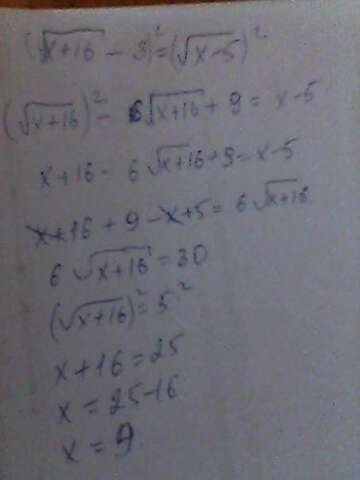 (√x+16 - 3)² = (√x-5)²
(√x+16)² - 6√x+16 + 9 = x-5
x+16 - 6√x+16 + 9 = x-5
x+16 + 9 - x+5 = 6√x+16
6√x+16 = 30
(√x+16)² = 5²
x+16 = 25
x = 25-16
x = 9